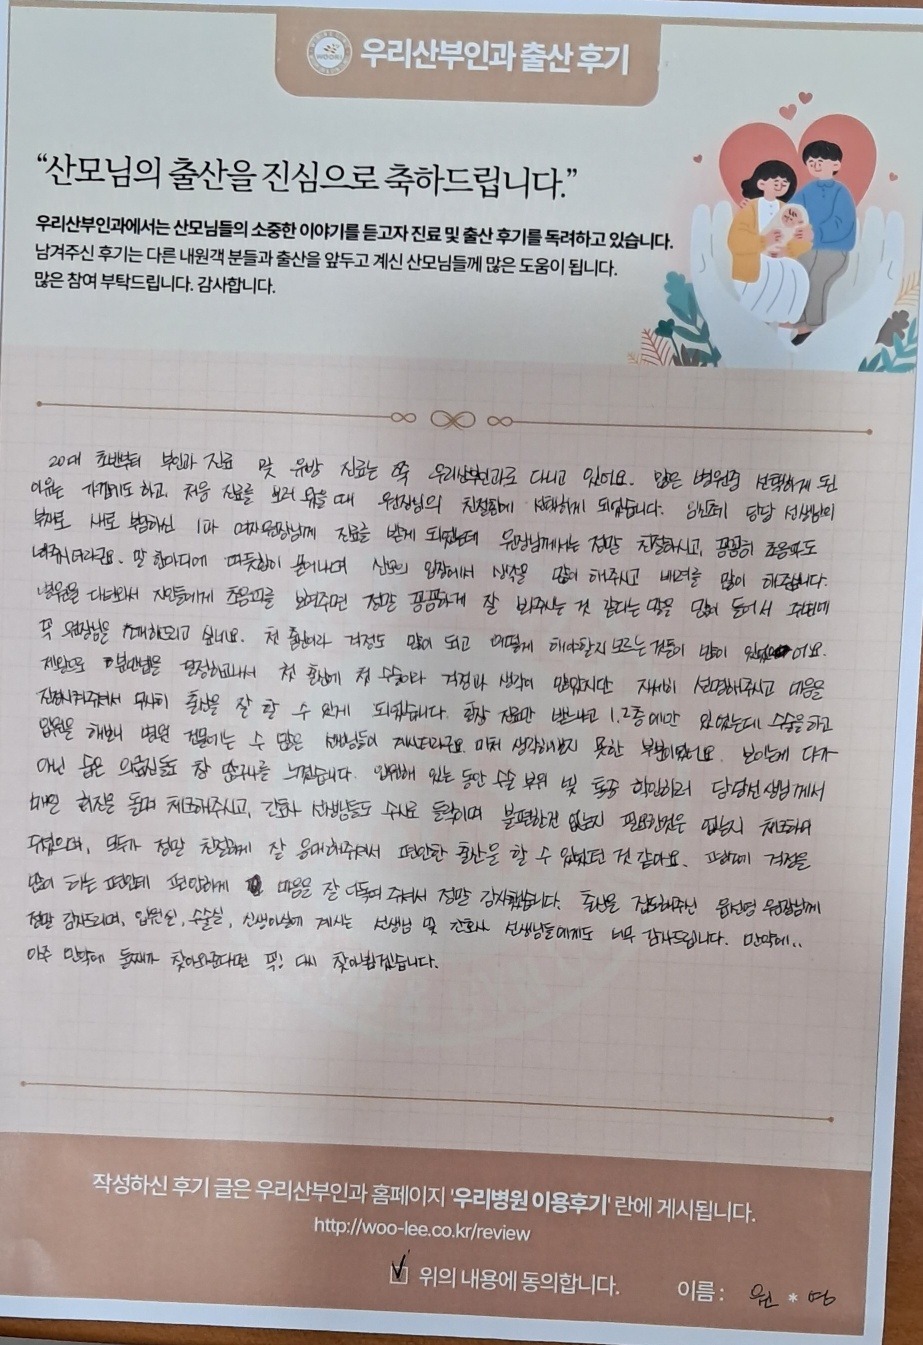 우리산부인과 출산 후기
“산모님의 출산을 진심으로 축하드립니다.”
우리산부인과에서는 산모님들의 소중한 이야기를 듣고자 진료 및 출산 후기를 독려하고 있습니다.
남겨주신 후기는 다른 내원객 분들과 출산을 앞두고 계신 산모님들께 많은 도움이 됩니다.
많은 참여 부탁드립니다. 감사합니다.
20대 초반부터 부인과 진료 및 유방 진료는 쭉 우리산부인과로 다니고 있어요. 많은 병원중 선택하게 된
이유는 가깝기도 하고, 처음 진료를 보러 왔을 때 원장님의 친절함에 선택하게 되었습니다. 임신초기 담당 선생님의
부재로 새로 부임하신 1과 여자원장님께 진료를 받게 되었는데 원장님께서는 정말 친절하시고, 꼼꼼히 초음파도
봐주시더라구요. 말 한마디에 따뜻함이 묻어나며 산모의 입장에서 생각을 많이 해주시고 배려를 많이 해주십니다.
병원을 다녀와서 지인들에게 초음파를 보여주면 정말 꼼꼼하게 잘 봐주시는 것 같다는 말을 많이 들어서 주변에
꼭 원장님을 추천해드리고 싶네요. 첫 출산이라 걱정도 많이 되고 어떻게 해야할지 모르는 것들이 많이 있었어요.
제왕으로 분만법을 결정하고나서 첫 출산에 첫 수술이라 걱정과 생각이 많았지만 자세히 설명해주시고 마음을
진정시켜주셔서 무사히 출산을 잘 할 수 있게 되었습니다. 항상 진료만 받느라고 1,2층에만 있었는데 수술을 하고
입원을 해보니 병원 건물에는 수 많은 선생님들이 계시더라구요. 미처 생각해보지 못한 부분이었어요. 보이는게 다가
아닌 숨은 의료진들도 참 많구나를 느꼈습니다. 입원해 있는 동안 수술 부위 및 통증 확인하러 담당선생님께서
매일 회진을 돌며 체크해주시고, 간호사 선생님들도 수시로 들락이며 불편한건 없는지 필요한것은 없는지 체크하여
주셨으며, 모두가 정말 친절하게 잘 응대해주셔서 편안한 출산을 할 수 있었던 것 같아요. 걱정을
많이 하는 편인데 편안하게 마음을 잘 다독여 주셔서 정말 감사했습니다. 출산을 집도해주신 원장님께
정말 감사드리며, 입원실, 수술실, 신생아실에 계시는 선생님 및 간호사 선생님들에게도 너무 감사드립니다. 만약에..
아주 만약에 둘째가 찾아와준다면 꼭! 다시 찾아뵙겠습니다.
작성하신 후기 글은 우리산부인과 홈페이지 '우리병원 이용후기' 란에 게시됩니다.
http://woo-lee.co.kr/review
위의 내용에 동의합니다. 이름 : 원 * 영